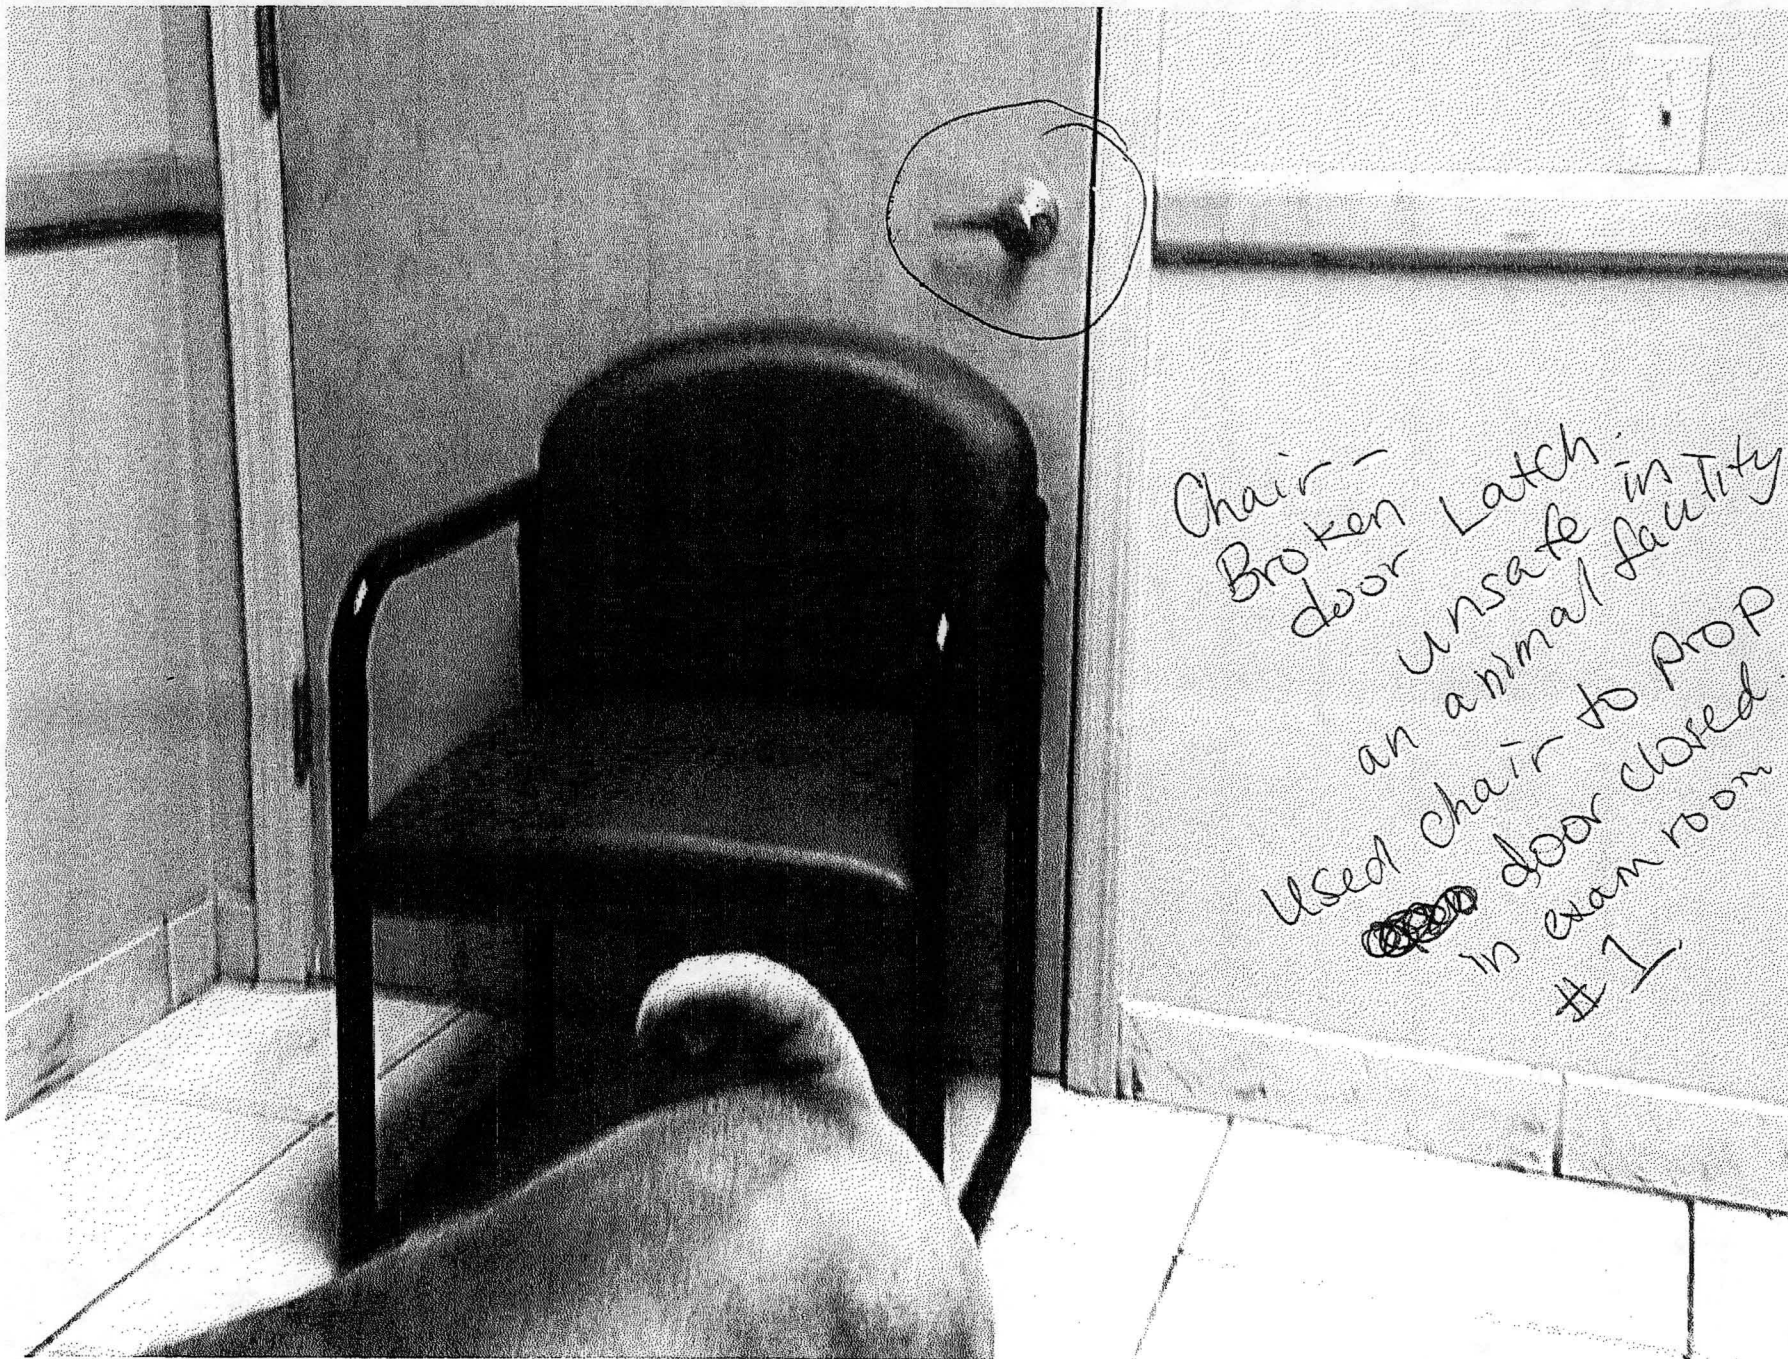 Chair -
Broken
door Latch.
unsafe in
an animal facility
Used chair to prop
door closed.
in exam room
# 1